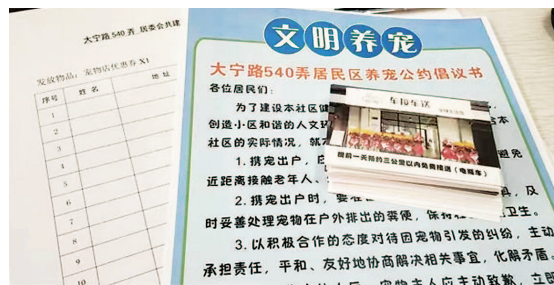 大宁路540弄 居委会共建
发放物品：宠物店优惠券 X1
序号 姓名 地址
1
2
3
4
5
6
7
8
9
10
文明养宠
大宁路540弄居民区养宠公约倡议书
各位居民们：
为了建设本社区健
创造小区和谐的人文环
社区的实际情况，就
1.携宠出户，应
避免
近距离接触老年人、
2.携宠出户时，要在
具，及
时妥善处理宠物在户外排出的粪便，保持
卫生。
3.以积极合作的态度对待因宠物引发的纠纷，主动
承担责任，平和、友好地协商解决相关事宜，化解矛盾。
宠物主人应主动致歉，立即
车接车送
提前一天预约三公里以内免费接送（电瓶车）